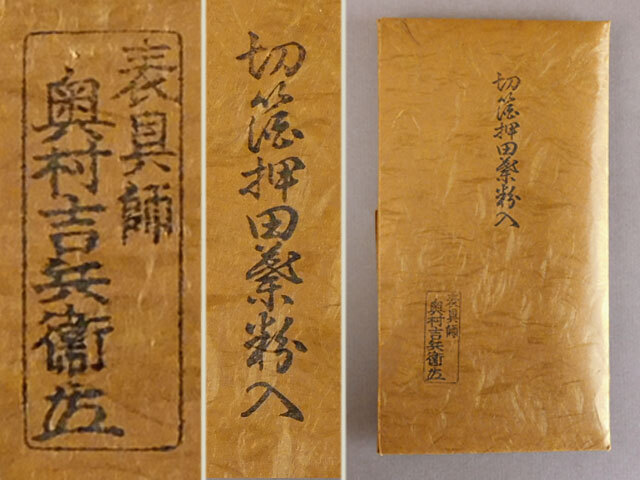 表具師
奥村吉兵衛
切箔押田葉粉入
切箔押田葉粉入
表具師
奥村吉兵衛